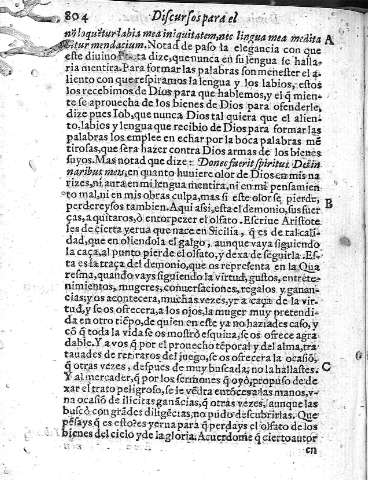 804 Discursos para el
nõ loquẽtur labia mea iniquitatem, nec lingua mea medita A
bitur mendacium. Notad de paso la elegancia con que
este diuino Poeta dize, que nunca en su lengua se halla-
ria mentira. Para formar las palabras son menester el a-
liento con que respiramos la lengua y los labios, estos
los recebimos de Dios para que hablemos, y el q̃ mien-
te se aprouecha de los bienes de Dios para ofenderle,
dize pues Iob, que nunca Dios tal quiera que el alien-
to, labios y lengua que recibio de Dios para formar las
palabras los emplee en echar por la boca palabras mẽ
tirosas, que sera hazer contra Dios armas de los bienes
suyos. Mas notad que dize: Donec fuerit spiritus Dei in
naribus meis, en quanto huuiere olor de Dios en mis na
rizes, ni aura en mi lengua mentira, ni en mi pensamien
to mal, ni en mis obras culpa, mas si este olor se pierde,
perdereys os tambien. Aqui assi, esta el demonio, sus fuer B
ças, a quitaros, ò entorpezer el olfato. Escriue Aristote
les de cierta yerua que nace en Sicilia, q̃ es de tal cali-
dad, que en oliendola el galgo, aunque vaya siguiendo
la caça, al punto pierde el olfato, y dexa de seguirla. Es-
ta es la traça del demonio, que os representa en la Qua
resma, quando vays siguiendo la virtud, gustos, entrete-
nimientos, mugeres, conuersaciones, regalos y ganan-
cias, y os acontecera, muchas vezes, yr a caça de la vir-
tud, y se os ofrecera, a los ojos, la muger muy pretendi-
da en otro tiẽpo, de quien en este ya no haziades caso, y
cõ q̃ toda la vida se os mostrò esquina, se os ofrece agra
dable. Y a vos q̃ por el prouecho tẽporal y del alma, tra
tauades de retiraros del juego, se os ofrecera la ocasiõ,
q̃ otras vezes, despues de muy buscada, no la hallastes. C
Y al mercader, q̃ por los sermones q̃ oyò, propuso de de-
xar el trato peligroso, se le vẽdra entõces a las manos, v-
na ocasiõ de ilicitas ganãcias, q̃ otras vezes, aunque las
buscò con grãdes diligẽcias, no pudo descubrirlas. Que
pẽsays q̃ es esto? es yerua para q̃ perdays el olfato de los
bienes del cielo y de la gloria. Acuerdome q̃ cierto autor
en